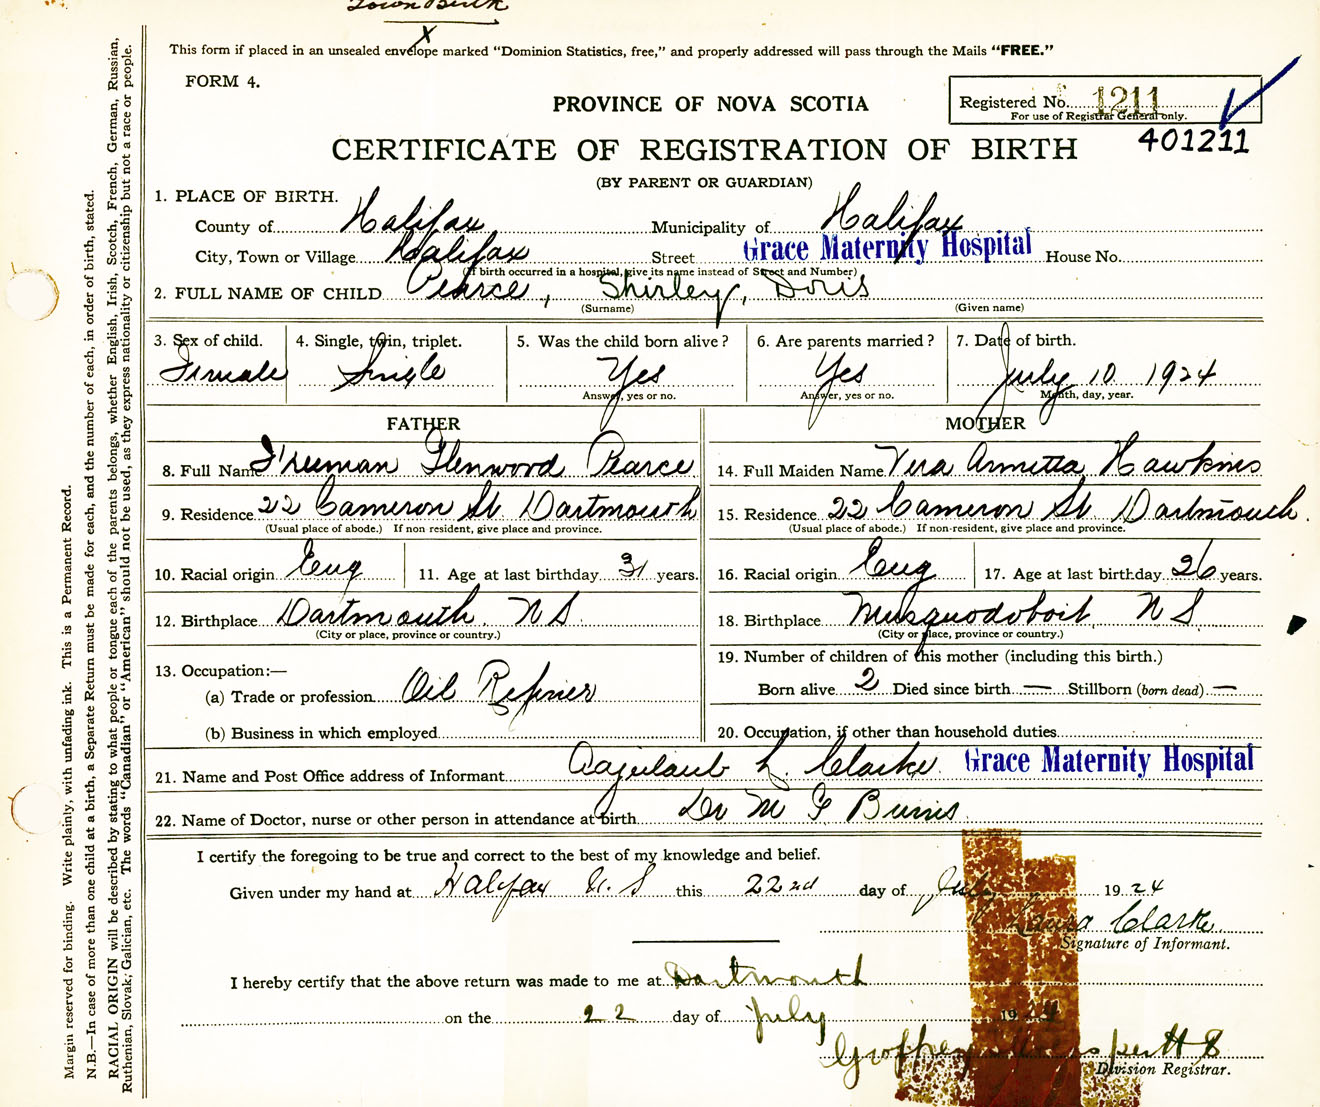 Town Birth
X
This form if placed in an unsealed envelope marked “Dominion Statistics, free,” and properly addressed will pass through the Mails “FREE.”
FORM 4.
PROVINCE OF NOVA SCOTIA
Registered No. 1211
For use of Registrar General only.
401211
CERTIFICATE OF REGISTRATION OF BIRTH
(BY PARENT OR GUARDIAN)
1. PLACE OF BIRTH.
County of Halifax Municipality of Halifax
City, Town or Village Halifax Street Grace Maternity Hospital House No.
(If birth occurred in a hospital, give its name instead of Street and Number)
2. FULL NAME OF CHILD Pearce, Shirley, Doris
(Surname) (Given name)
3. Sex of child. 4. Single, twin, triplet. 5. Was the child born alive? 6. Are parents married? 7. Date of birth.
Female Single Yes Yes July 10 1924
Answer, yes or no. Answer, yes or no. Month, day, year.
FATHER MOTHER
8. Full Name Freeman Glenwood Pearce 14. Full Maiden Name Vera Armetta Hawkins
9. Residence 22 Cameron St Dartmouth 15. Residence 22 Cameron St Dartmouth.
(Usual place of abode.) If non resident, give place and province. (Usual place of abode.) If non-resident, give place and province.
10. Racial origin Eng 11. Age at last birthday 31 years. 16. Racial origin Eng 17. Age at last birthday 26 years.
12. Birthplace Dartmouth. N S. 18. Birthplace Musquodoboit, N S.
(City or place, province or country.) (City or place, province or country.)
13. Occupation:— 19. Number of children of this mother (including this birth.)
(a) Trade or profession Oil Refiner Born alive 2 Died since birth — Stillborn (born dead) —
(b) Business in which employed 20. Occupation, if other than household duties
21. Name and Post Office address of Informant L. Clarke. Grace Maternity Hospital
22. Name of Doctor, nurse or other person in attendance at birth Dr M G Burris
I certify the foregoing to be true and correct to the best of my knowledge and belief.
Given under my hand at Halifax N. S this 22nd day of July 1924
Laura Clarke.
Signature of Informant.
I hereby certify that the above return was made to me at Dartmouth
on the 22 day of July 1924
Division Registrar.
Margin reserved for binding. Write plainly, with unfading ink. This is a Permanent Record.
N.B.—In case of more than one child at a birth, a Separate Return must be made for each, and the number of each, in order of birth, stated.
RACIAL ORIGIN will be described by stating to what people or tongue each of the parents belongs, whether English, Irish, Scotch, French, German, Russian,
Ruthenian, Slovak, Galician, etc. The words “Canadian” or “American” should not be used, as they express nationality or citizenship but not a race or people.